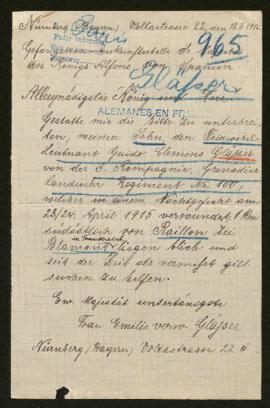 Nürnberg (Bayern) Voltastrasse 22, den
965
des Königs Alfons von Spanien.
Gläßer
Allergnädigster König und Herr
ALEMANES EN FR
Gestatte mir die Bitte zu unterbrei-
ten, meinen Sohn, den Feldwebel-
Leutnant Guido Clemens Gläßer
von der 5. Kompagnie, Grenadier
Landwehr Regiment No 100,
welcher in einem Nachtgefecht am
23/24. April 1915 verwundet, 1 Km
südöstlich von Reillon bei
in Frankreich
Blamont liegen blieb und
seit der Zeit als vermißt gilt
suchen zu helfen.
Ew. Majestät untertänigste
Frau Emilie verw. Gläßer
Nürnberg (Bayern) Voltastrasse 22 III